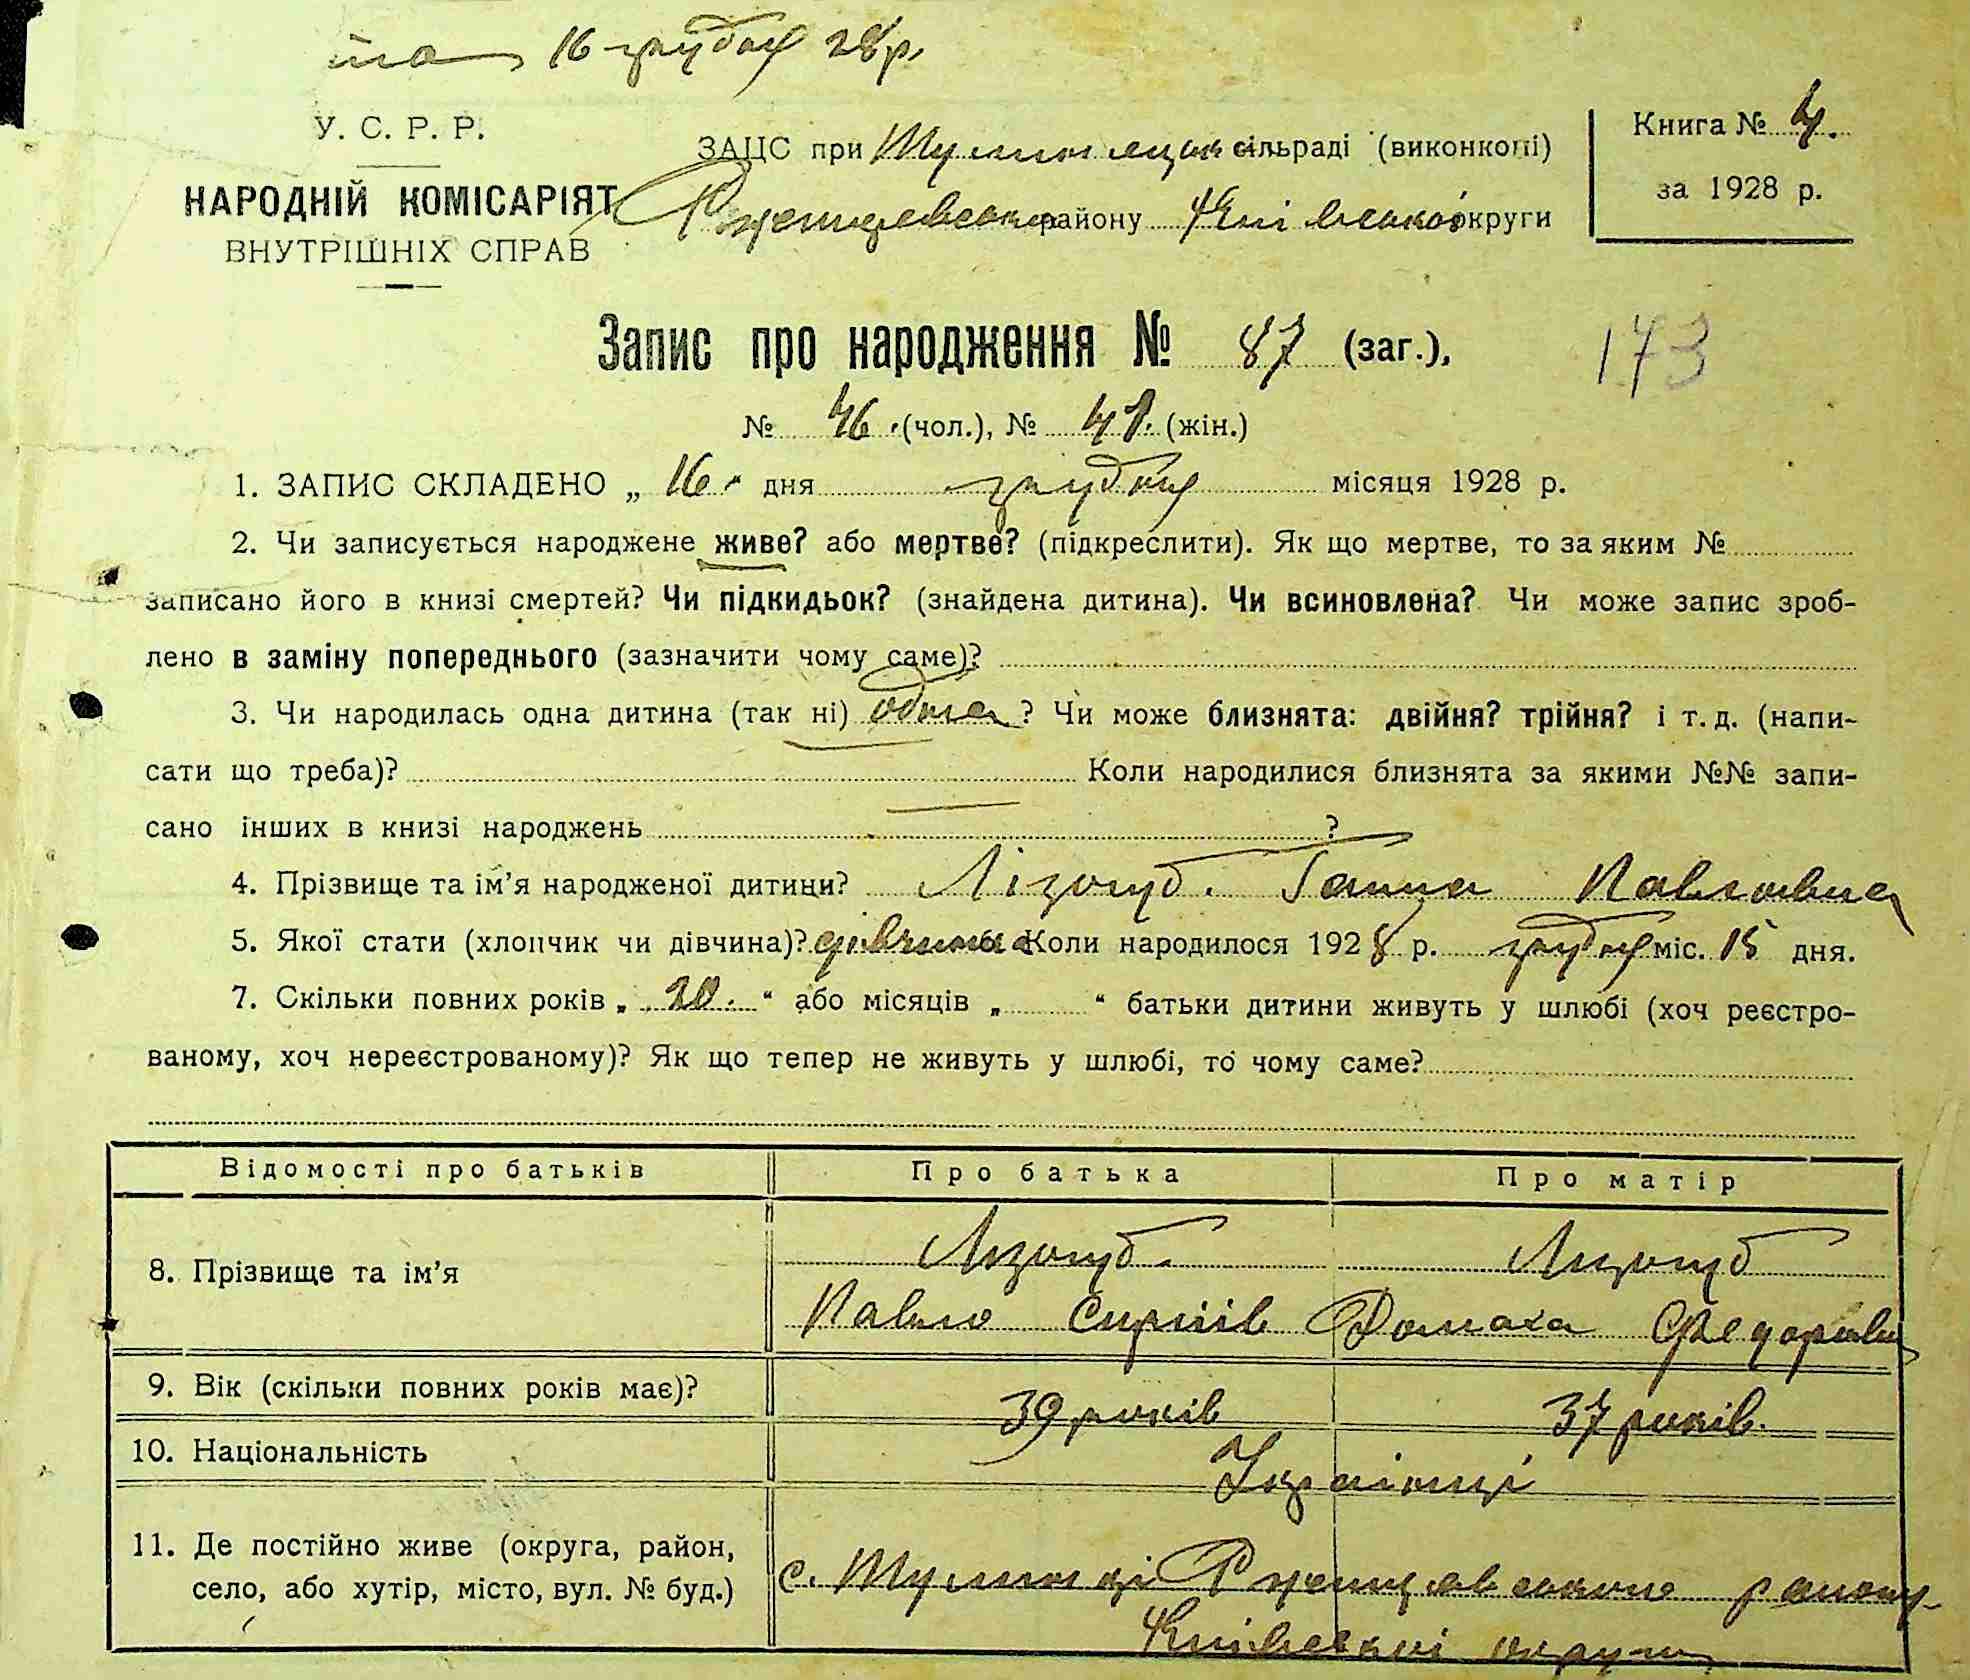 16 грудня 28 р.
У. С. Р. Р.
ЗАЦС при сільраді (виконкомі)
Книга № 4.
НАРОДНІЙ КОМІСАРІЯТ
Ржищевського району Київської округи
за 1928 р.
ВНУТРІШНІХ СПРАВ
Запис про народження № 87 (заг.),
173
№ 46 (чол.), № 41. (жін.)
1. ЗАПИС СКЛАДЕНО „ 16 " дня грудня місяця 1928 р.
2. Чи записується народжене живе? або мертве? (підкреслити). Як що мертве, то за яким №
записано його в книзі смертей? Чи підкидьок? (знайдена дитина). Чи всиновлена? Чи може запис зроб-
лено в заміну попереднього (зазначити чому саме)?
3. Чи народилась одна дитина (так ні) одна? Чи може близнята: двійня? трійня? і т. д. (напи-
сати що треба)? Коли народилися близнята за якими №№ запи-
сано інших в книзі народжень ?
4. Прізвище та ім'я народженої дитини? Лізогуб. Ганна Павловна
5. Якої стати (хлопчик чи дівчина)? дівчина Коли народилося 1928 р. грудня міс. 15 дня.
7. Скільки повних років „ 20. " або місяців „ " батьки дитини живуть у шлюбі (хоч реєстро-
ваному, хоч нереєстрованому)? Як що тепер не живуть у шлюбі, то чому саме?
Відомості про батьків Про батька Про матір
8. Прізвище та ім'я
Лизогуб. Лизогуб
Павло Сиргіїв Домаха Федорівн
9. Вік (скільки повних років має)? 39 років 37 років.
10. Національність Українці
11. Де постійно живе (округа, район,
село, або хутір, місто, вул. № буд.)
с. Ржищевського району
Київської округи